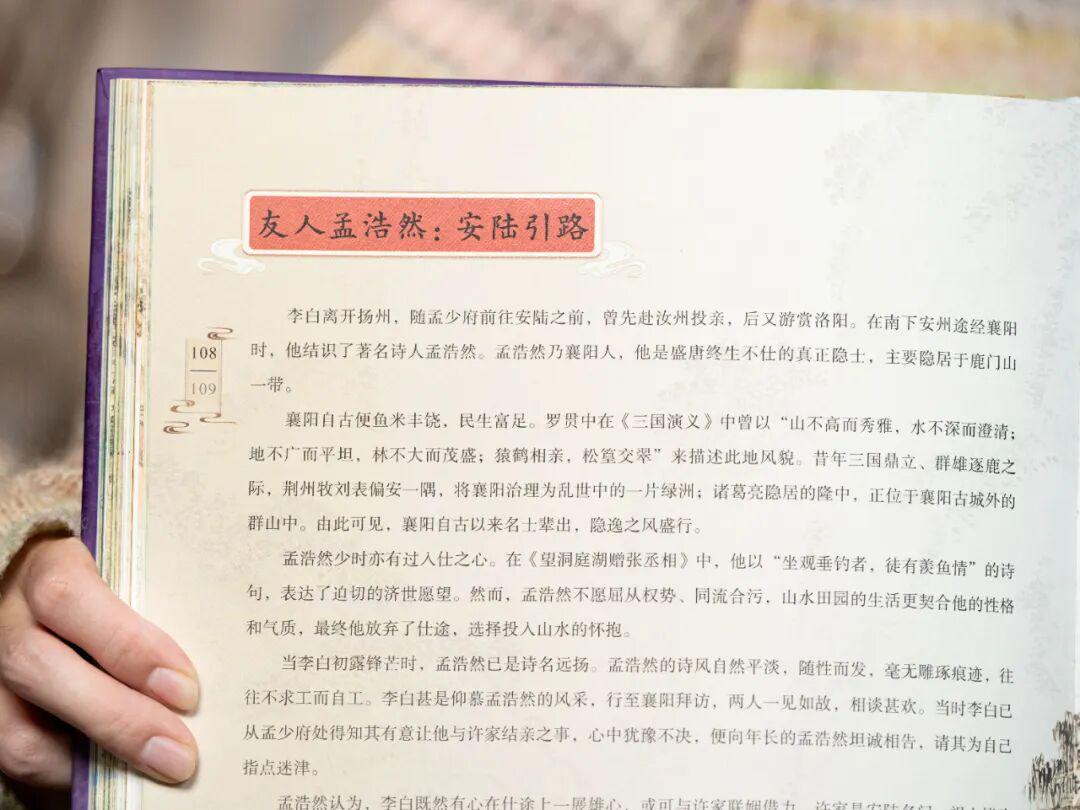 友人孟浩然：安陆引路
李白离开扬州，随孟少府前往安陆之前，曾先赴汝州投亲，后又游赏洛阳。在南下安州途经襄阳
时，他结识了著名诗人孟浩然。孟浩然乃襄阳人，他是盛唐终生不仕的真正隐士，主要隐居于鹿门山
一带。
108
109
襄阳自古便鱼米丰饶，民生富足。罗贯中在《三国演义》中曾以“山不高而秀雅，水不深而澄清；
地不广而平坦，林不大而茂盛；猿鹤相亲，松篁交翠”来描述此地风貌。昔年三国鼎立、群雄逐鹿之
际，荆州牧刘表偏安一隅，将襄阳治理为乱世中的一片绿洲；诸葛亮隐居的隆中，正位于襄阳古城外的
群山中。由此可见，襄阳自古以来名士辈出，隐逸之风盛行。
孟浩然少时亦有过入仕之心。在《望洞庭湖赠张丞相》中，他以“坐观垂钓者，徒有羡鱼情”的诗
句，表达了迫切的济世愿望。然而，孟浩然不愿屈从权势、同流合污，山水田园的生活更契合他的性格
和气质，最终他放弃了仕途，选择投入山水的怀抱。
当李白初露锋芒时，孟浩然已是诗名远扬。孟浩然的诗风自然平淡，随性而发，毫无雕琢痕迹，往
往不求工而自工。李白甚是仰慕孟浩然的风采，行至襄阳拜访，两人一见如故，相谈甚欢。当时李白已
从孟少府处得知其有意让他与许家结亲之事，心中犹豫不决，便向年长的孟浩然坦诚相告，请其为自己
指点迷津。
孟浩然认为，李白既然有心在仕途上一展雄心，或可与许家联姻借力。许家是安陆名门，祖上